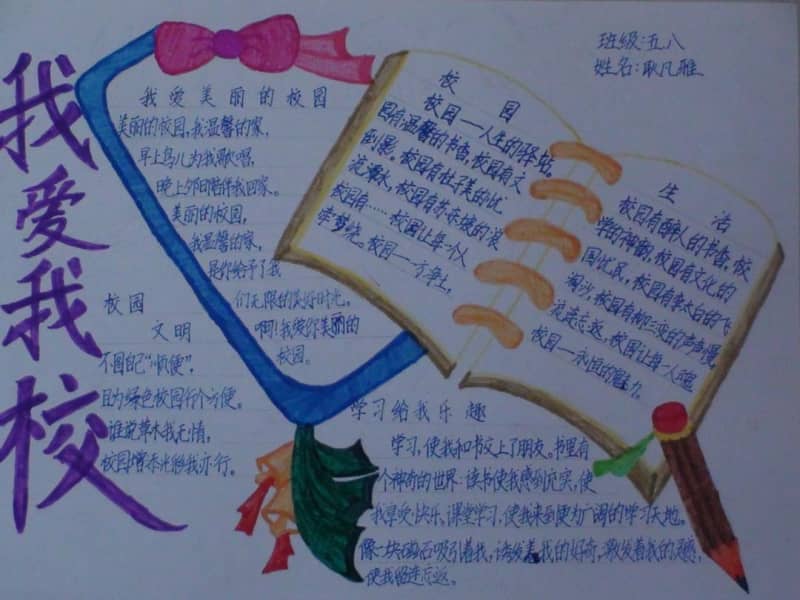 我爱我校
班级:五八
姓名:耿凡雅
我爱美丽的校园
美丽的校园,我温馨的家,
早上鸟儿为我歌唱,
晚上夕阳陪伴我回家。
美丽的校园,
我温馨的家,
是你给予了我
们无限的美好时光。
啊!我爱你美丽的
校园。
校园
文明
不图自己“顺便”,
且为绿色校园行个方便。
谁说草木我无情,
校园增添光彩我亦行。
校园
校园——人生的驿站。
园有温馨的书香,校园有文
倒影。校园有杜子美的比
流潭水,校园有苏东坡的浪
校园有……校园让每个人
牵梦绕。校园——方净土。
生活
校园有醉人的书香,校
学的神韵,校园有文化的
园忧民,校园有李太白的飞
淘沙,校园有柳三变的声声慢,
流连忘返。校园让每一人魂
校园——永恒的魅力。
学习给我乐趣
学习,使我和书交上了朋友。书里有
个神奇的世界:读书使我感到充实,使
我享受快乐。课堂学习,使我来到更为广阔的学习天地。
像一块磁石吸引着我,诱发着我的好奇,激发着我的灵感,
使我留连忘返。